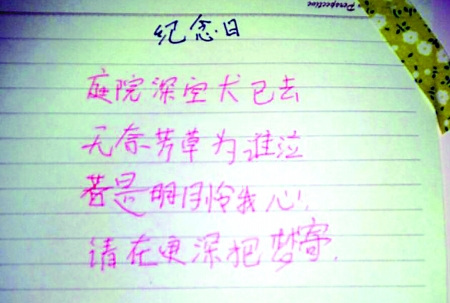 Perspective
纪念·日
庭院深空犬已去
无奈芳草为谁泣
若是明月怜我心!
请在更深把梦寄.